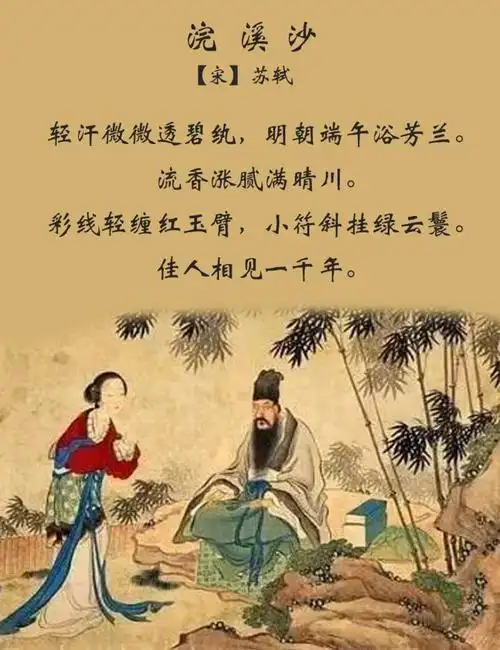 浣溪沙
【宋】苏轼
轻汗微微透碧纨，明朝端午浴芳兰。
流香涨腻满晴川。
彩线轻缠红玉臂，小符斜挂绿云鬟。
佳人相见一千年。